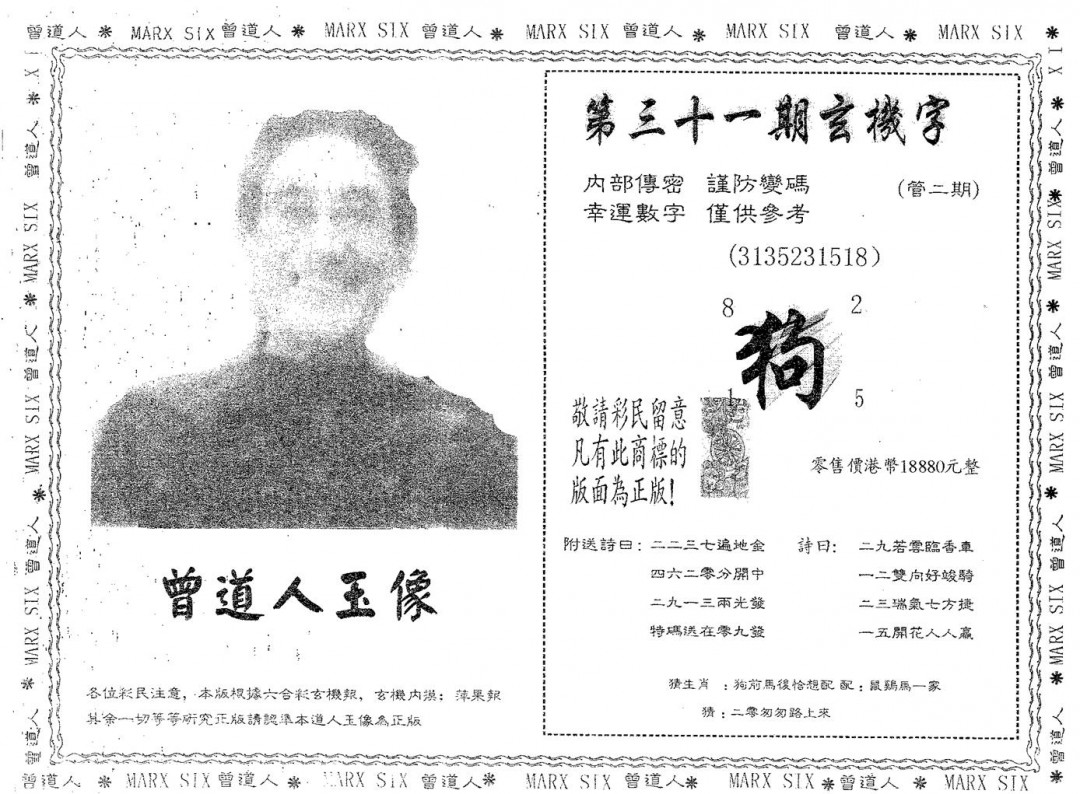 曾道人 * MARX SIX 曾道人 * MARX SIX 曾道人 * MARX SIX 曾道人 * MARX SIX 曾道人 * MARX SIX *
第三十一期玄機字
內部傳密 謹防變碼
(管二期)
幸運數字 僅供參考
(3135231518)
8 2
狗
1 5
敬請彩民留意
凡有此商標的
版面為正版!
零售價港幣18880元整
附送詩曰:二二三七遍地金
四六二零分開中
二九一三兩光發
特碼送在零九發
詩曰: 二九若雲臨香車
一二雙向好竣騎
二三瑞氣七方捷
一五開花人人贏
猜生肖 :狗前馬後恰想配 配:鼠鷄馬一家
猜:二零匆匆路上來
曾道人玉像
各位彩民注意,本版根據六合彩玄機報,玄機內摸:萍果報
其余一切等等研究正版請認準本道人玉像為正版
曾道人 * MARX SIX 曾道人 * MARX SIX 曾道人 * MARX SIX 曾道人 * MARX SIX * 曾道人 * MARX SIX